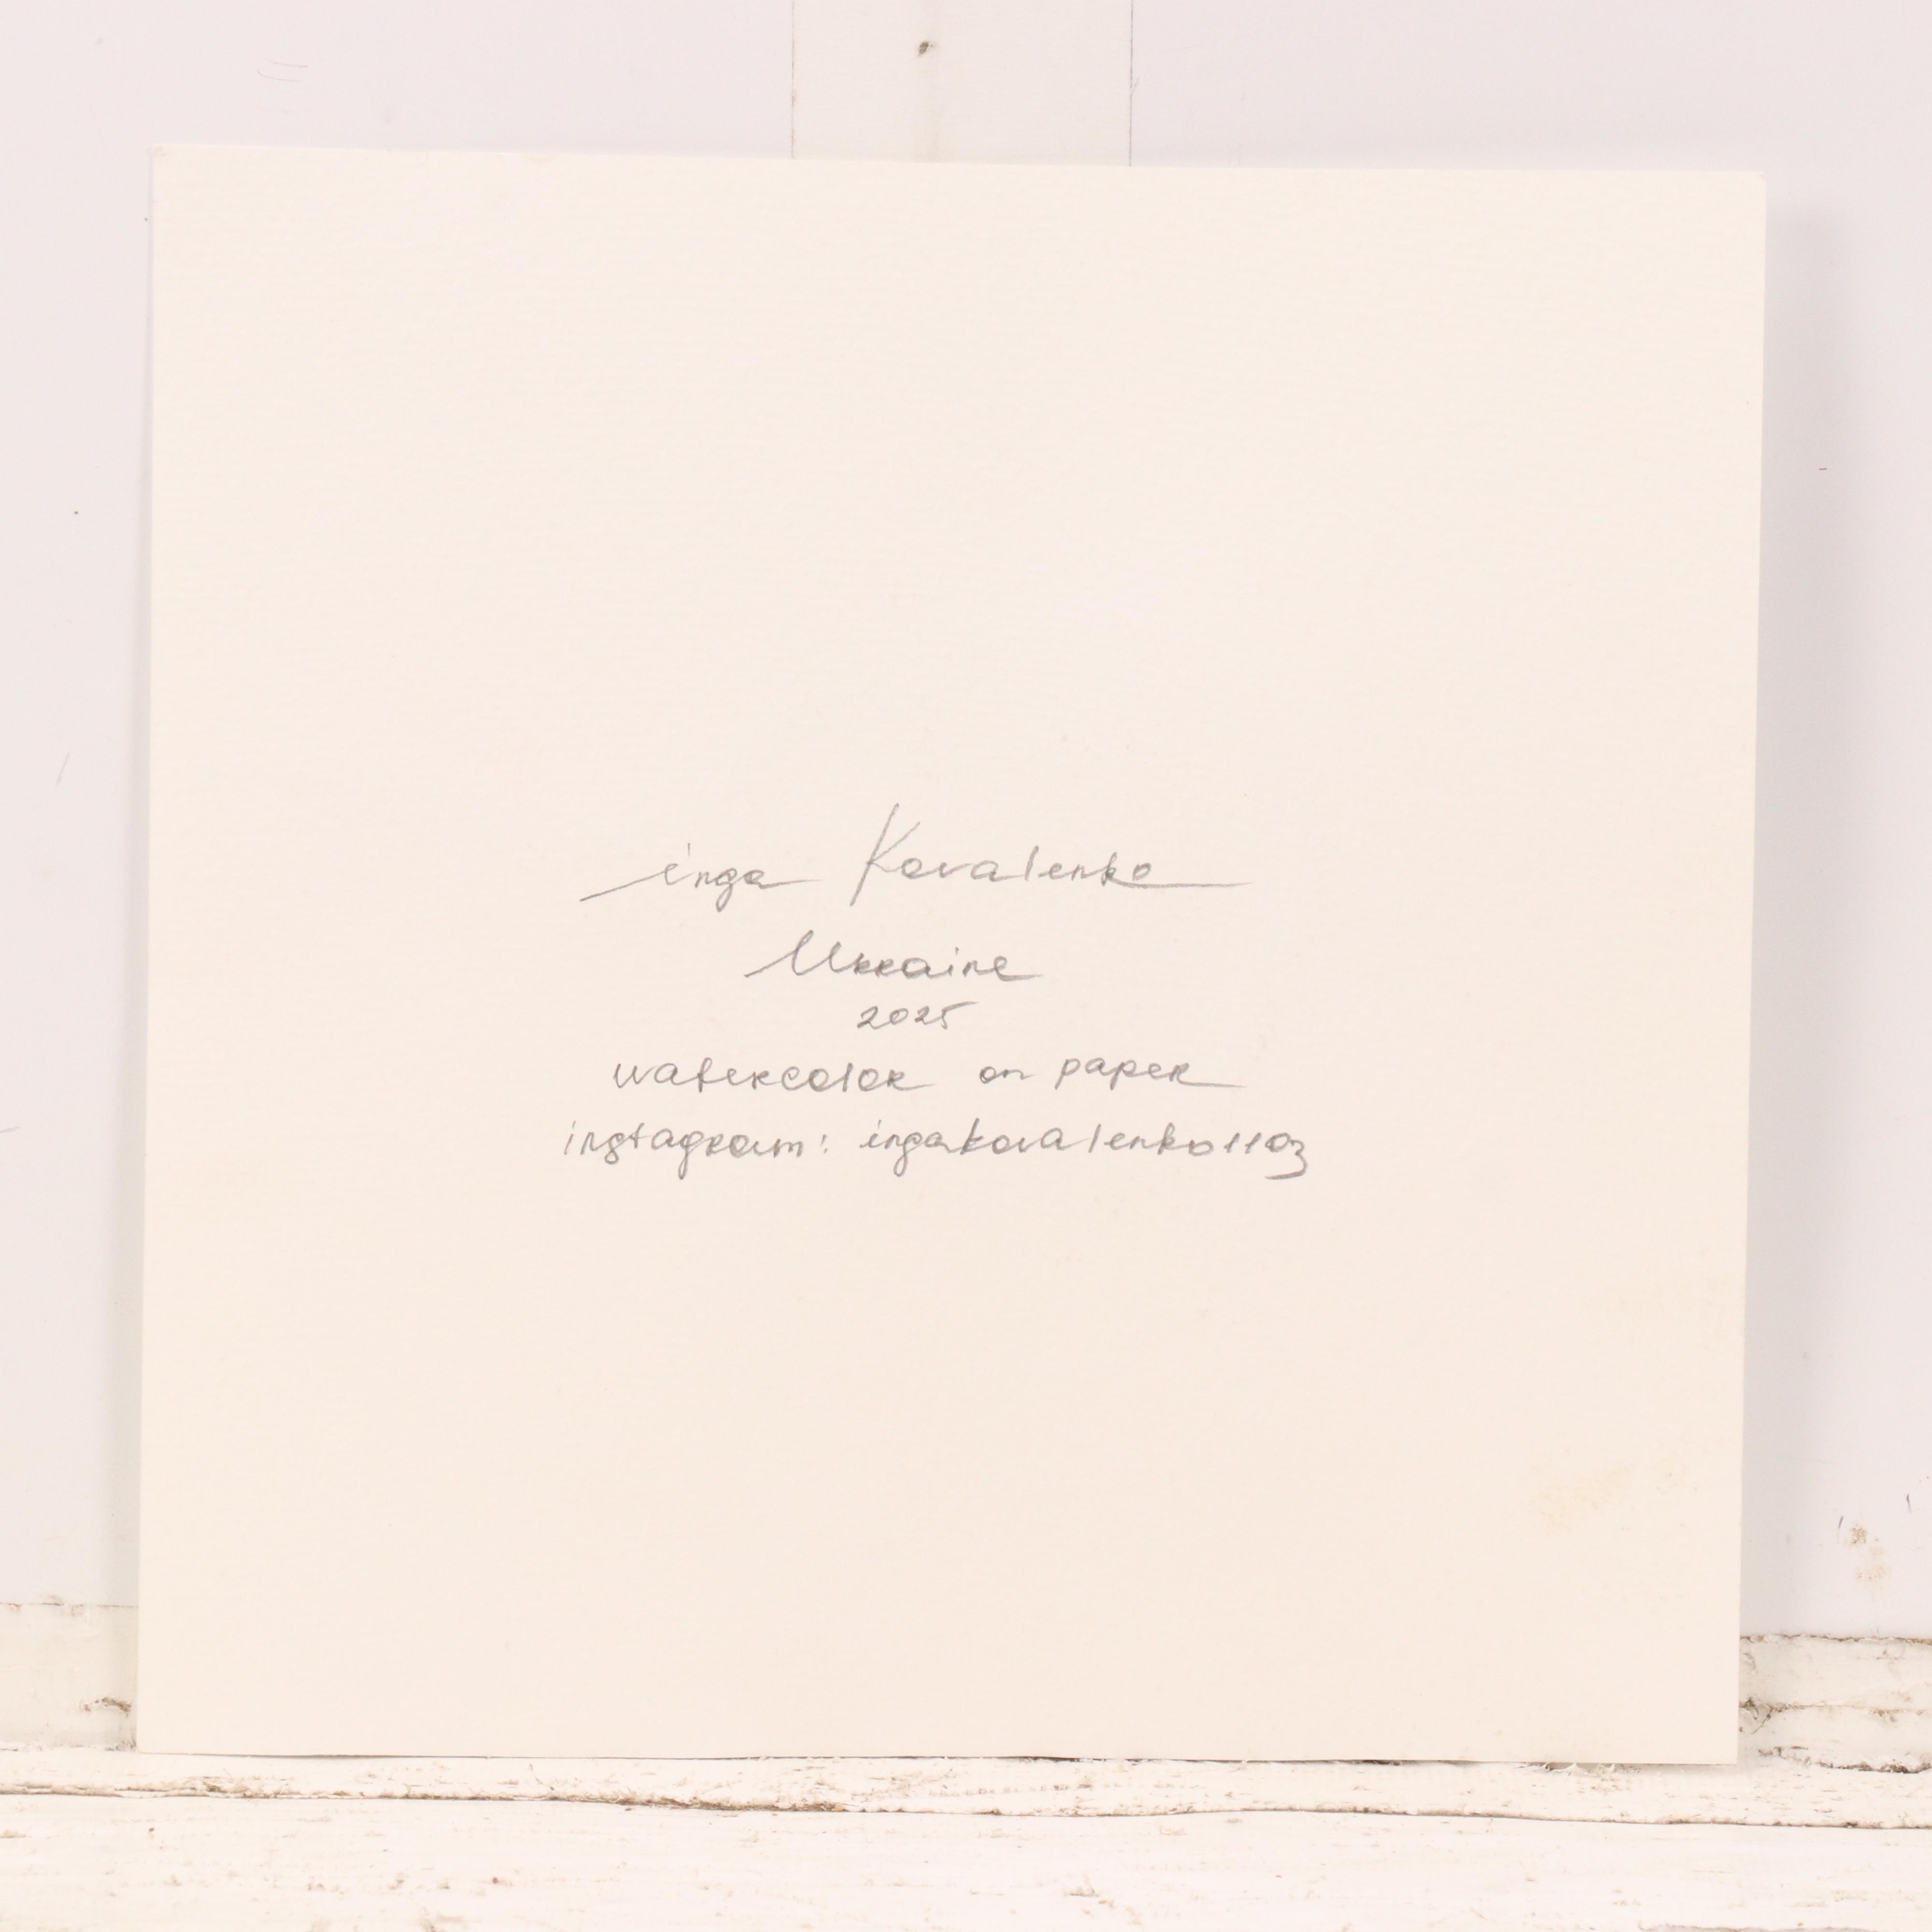 inga Kovalenko
Ukraine
2025
watercolor on paper
instagram: ingakovalenko1103